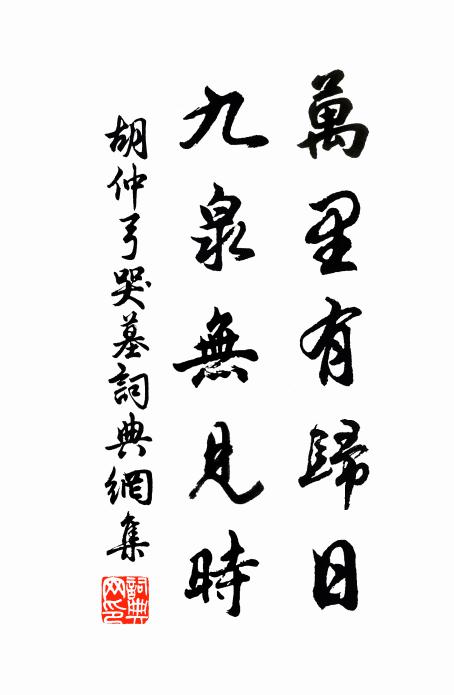 萬里有歸日
九泉無見時
胡仲弓哭墓詞典網集
詞典
网印